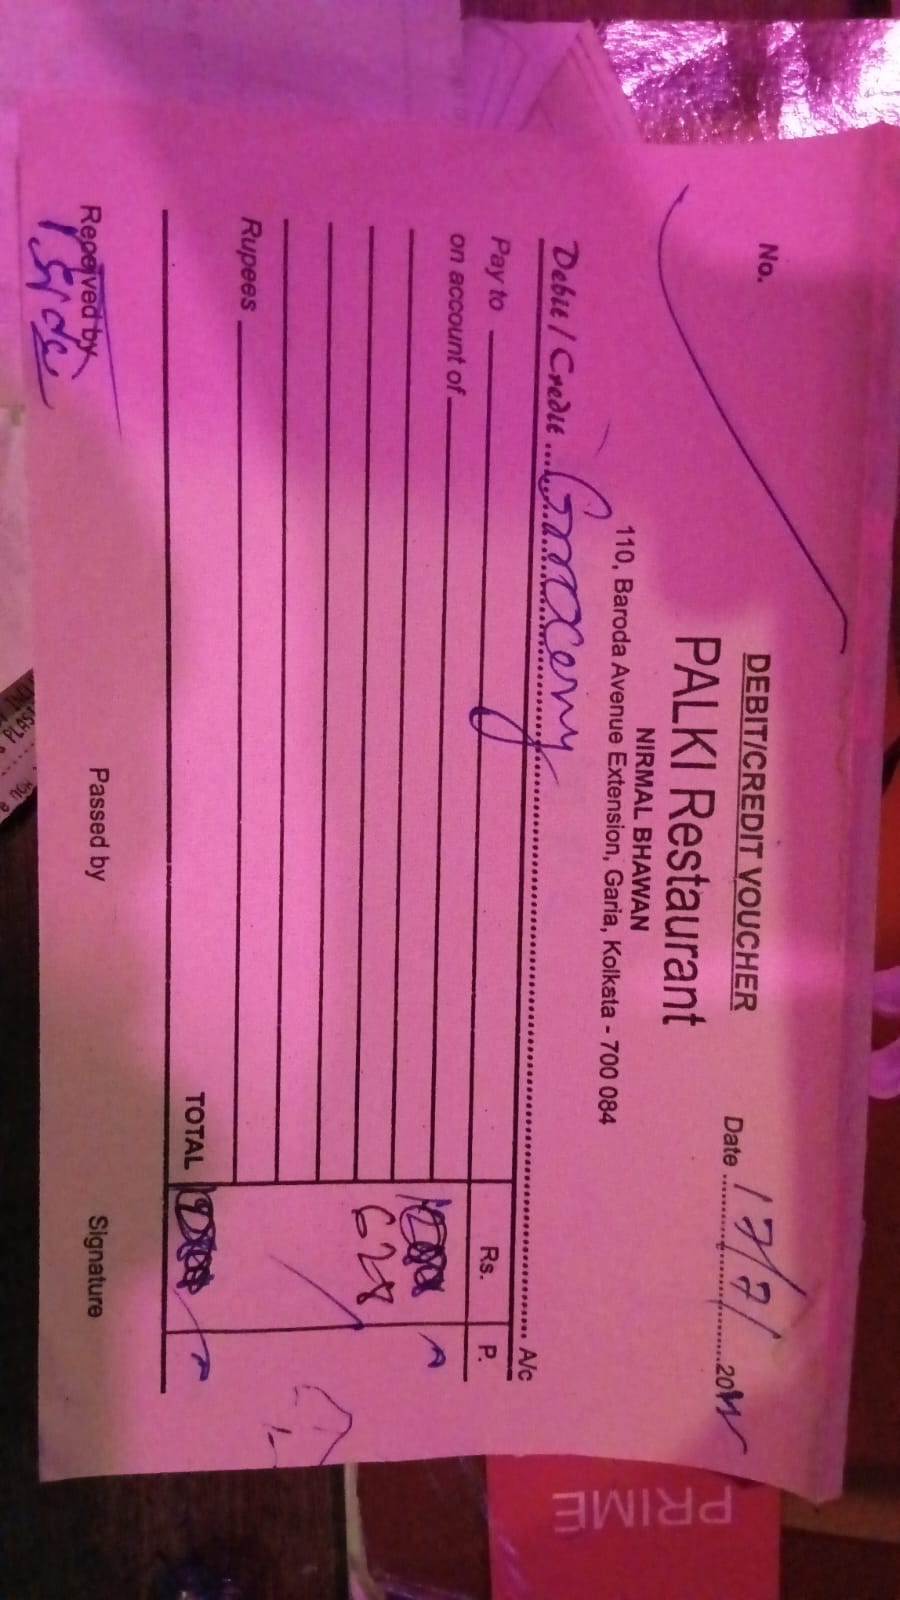 DEBIT/CREDIT VOUCHER
No.
Date ........ 17/7/ ........ 20
PALKI Restaurant
NIRMAL BHAWAN
110, Baroda Avenue Extension, Garia, Kolkata - 700 084
Debit / Credit ........ Grocery ........ A/c
Pay to
Rs. P.
on account of
628
Rupees
TOTAL
Received by Passed by Signature
PRIME